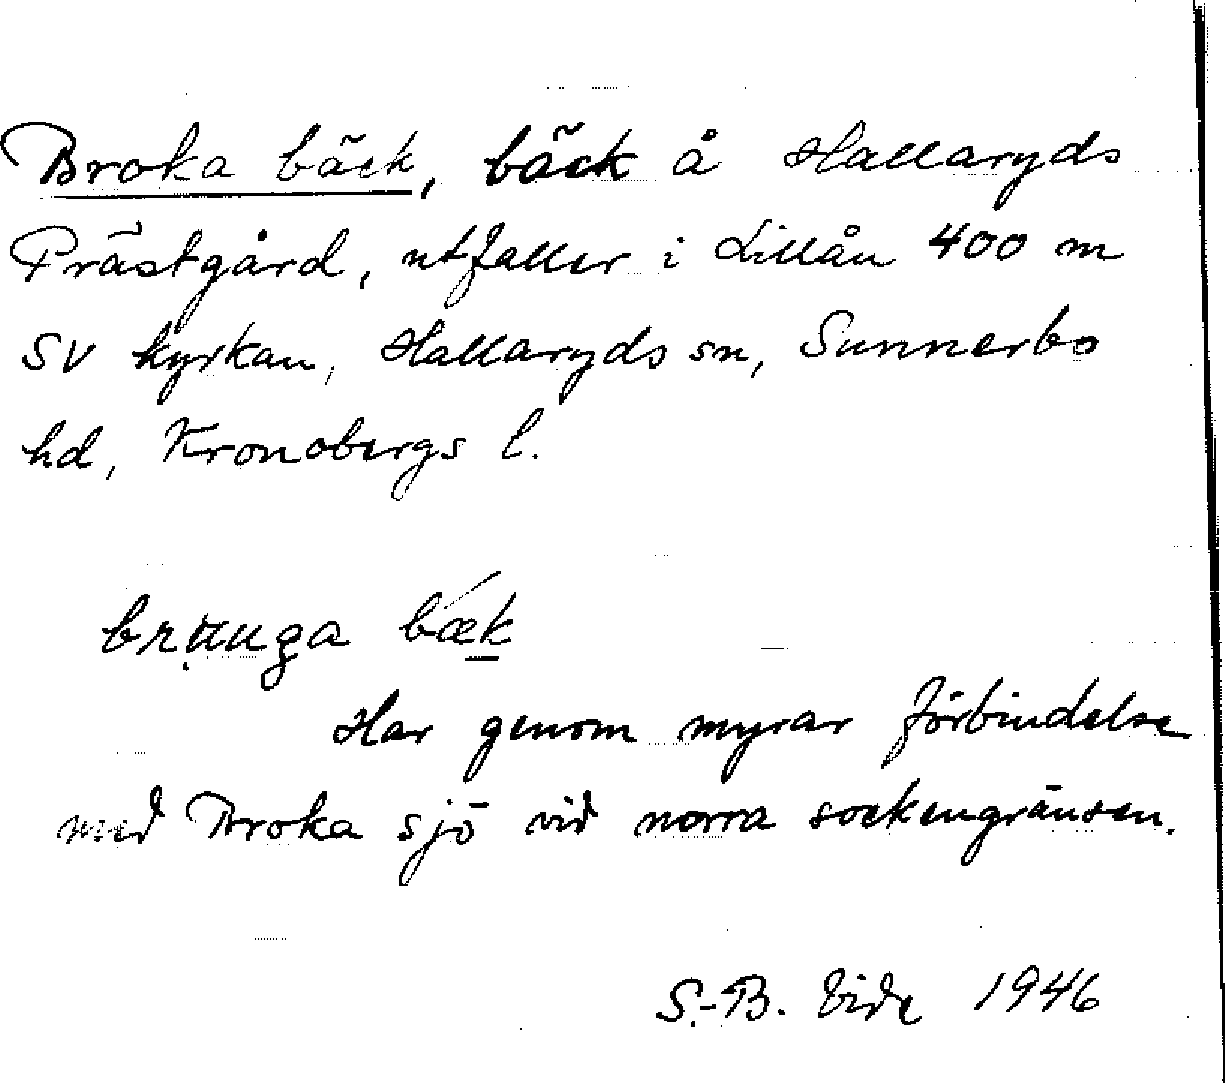 Broka bäck, bäck å Hallaryds
Prästgård, utfaller i Lillån 400 m
SV kyrkan, Hallaryds sn, Sunnerbo
hd, Kronobergs l.
bæk
Har genom myrar förbindelse
med Broka sjö vid norra sockengränsen.
S.-B. Vide 1946